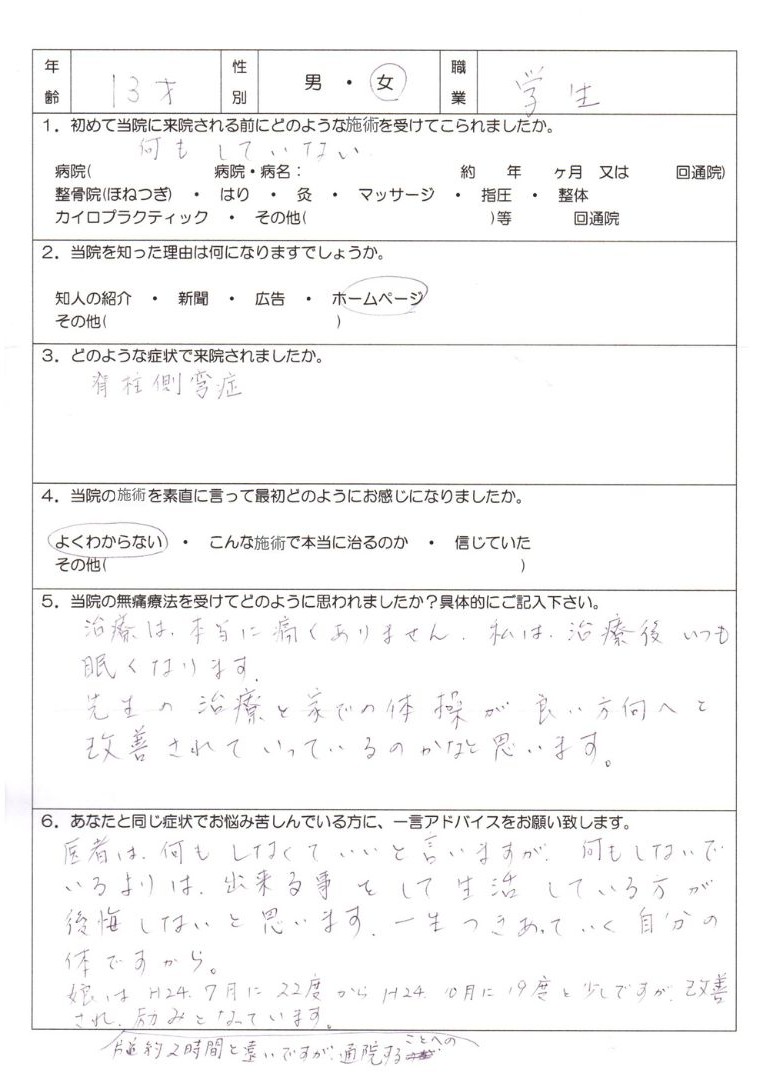 年齢 13才 性別 男 ・ 女 職業 学生
1. 初めて当院に来院される前にどのような施術を受けてこられましたか。
何もしていない
病院( 病院・病名: 約 年 ヶ月 又は 回通院)
整骨院(ほねつぎ) ・ はり ・ 灸 ・ マッサージ ・ 指圧 ・ 整体
カイロプラクティック ・ その他( )等 回通院
2. 当院を知った理由は何になりますでしょうか。
知人の紹介 ・ 新聞 ・ 広告 ・ ホームページ
その他( )
3. どのような症状で来院されましたか。
脊柱側弯症
4. 当院の施術を素直に言って最初どのようにお感じになりましたか。
よくわからない ・ こんな施術で本当に治るのか ・ 信じていた
その他( )
5. 当院の無痛療法を受けてどのように思われましたか?具体的にご記入下さい。
治療は、本当に痛くありません。私は、治療後いつも
眠くなります。
先生の治療と家での体操が良い方向へと
改善されていっているのかなと思います。
6. あなたと同じ症状でお悩み苦しんでいる方に、一言アドバイスをお願い致します。
医者は、何もしなくていいと言いますが、何もしないで
いるよりは、出来る事をして生活している方が
後悔しないと思います。一生つきあっていく自分の
体ですから。
娘は H24. 7月に 22度から H24. 10月に 19度と少しですが、改善
され、励みとなっています。
片道約2時間と遠いですが、通院することへの